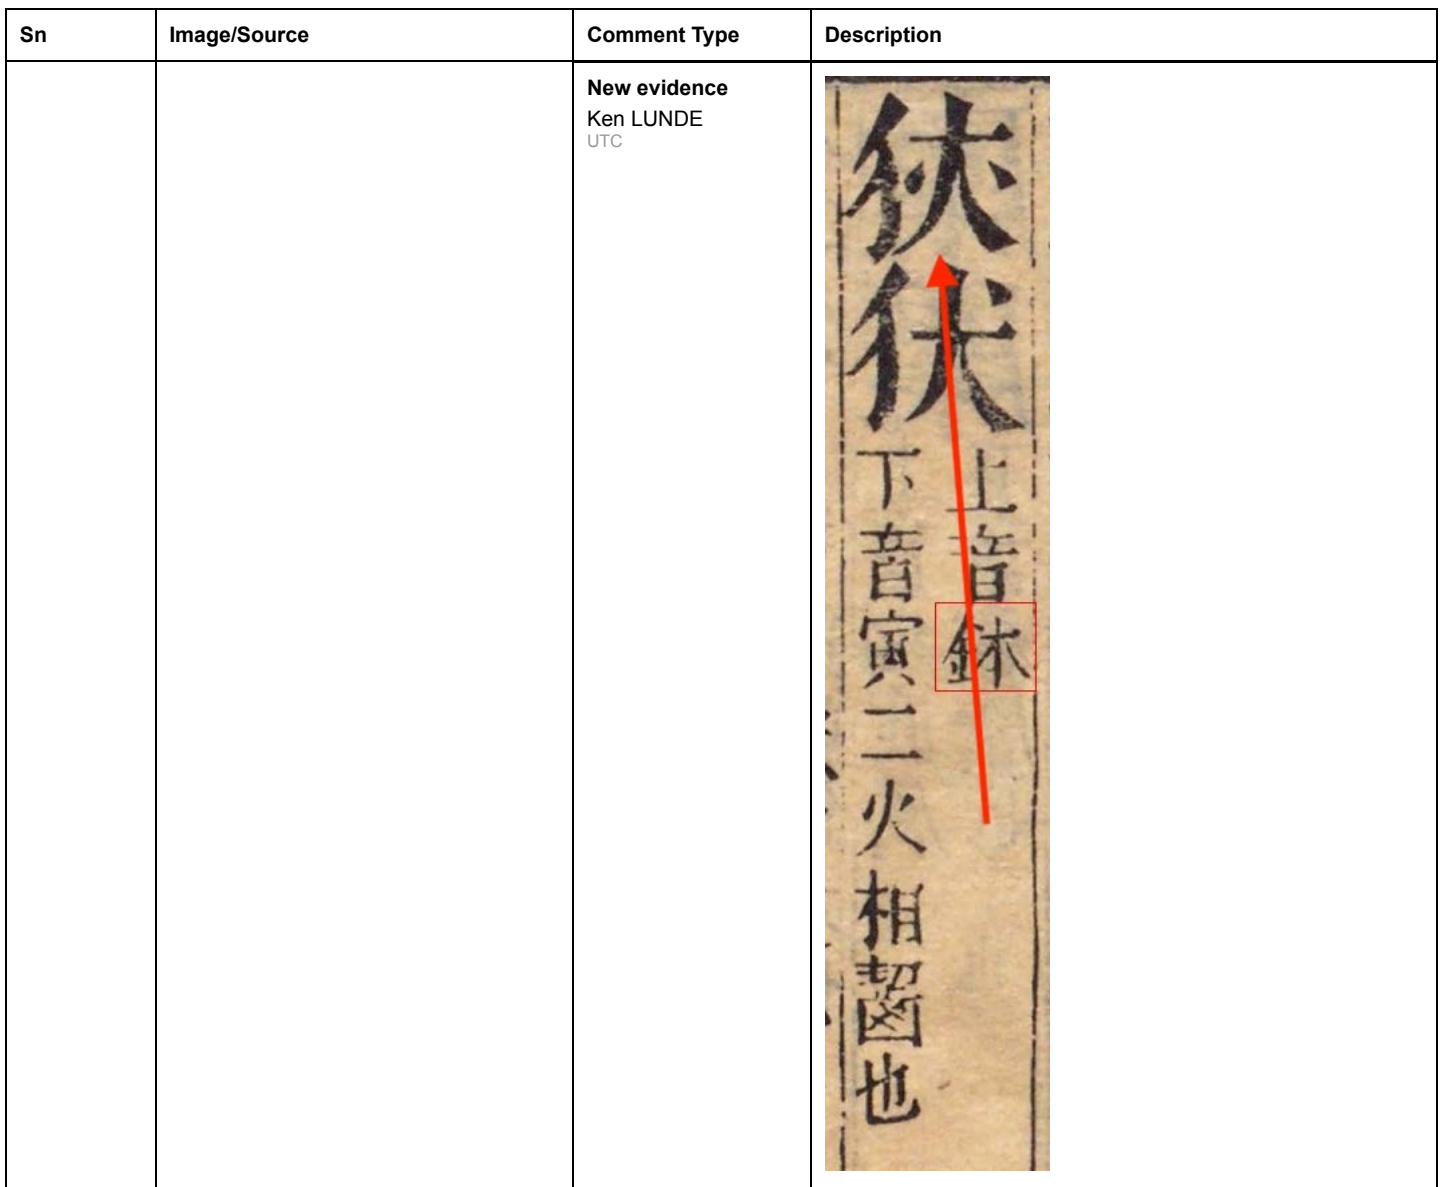 Sn Image/Source Comment Type Description
New evidence
Ken LUNDE
UTC
伏
上音鉢
下音寅二火相齧也